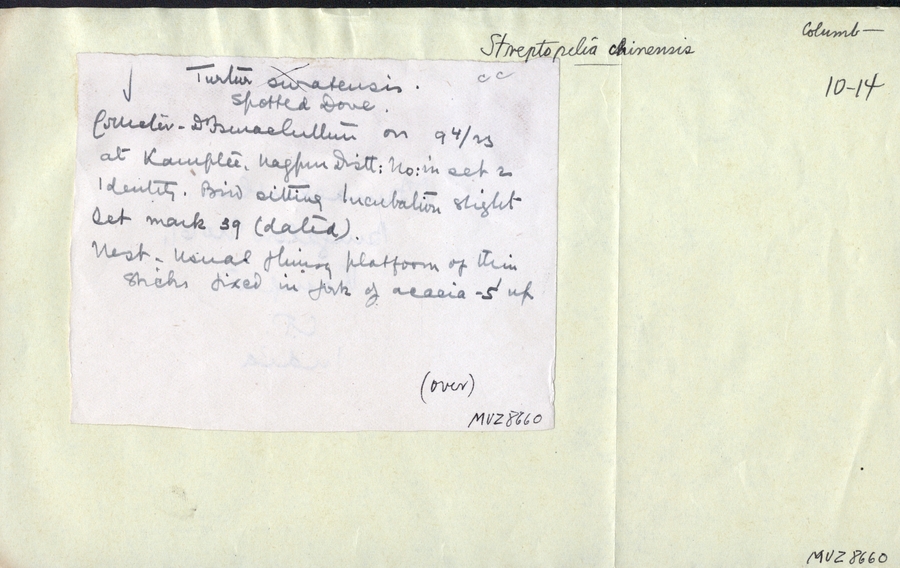 Columb—
Streptopelia chinensis
10-14
Turtur suratensis.
Spotted Dove.
on 9 4/23
at Kamptee. Nagpur Distt: No: in set 2
Identity. Bird sitting Incubation slight
Set mark 39 (dated).
Nest - usual flimsy platform of thin
sticks fixed in fork of acacia - 5' up
(over)
MVZ8660
MVZ8660